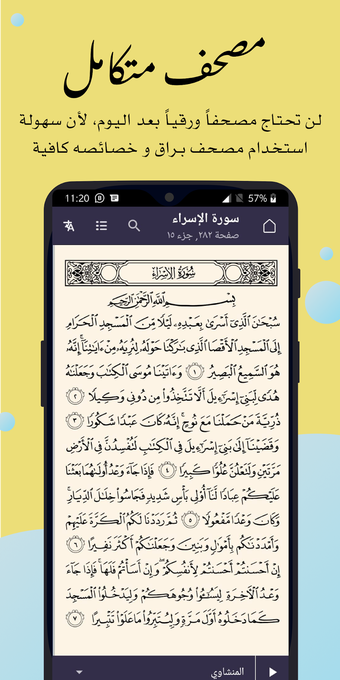 مصحف متكامل
لن تحتاج مصحفاً ورقياً بعد اليوم، لأن سهولة
استخدام مصحف براق و خصائصه كافية
11:20
57%
سورة الإسراء
صفحة ٢٨٢, جزء ١٥
سُورَةُ الإِسْرَاءِ
بِسْمِ ٱللَّهِ ٱلرَّحْمَٰنِ ٱلرَّحِيمِ
سُبْحَٰنَ ٱلَّذِىٓ أَسْرَىٰ بِعَبْدِهِۦ لَيْلًا مِّنَ ٱلْمَسْجِدِ ٱلْحَرَامِ
إِلَى ٱلْمَسْجِدِ ٱلْأَقْصَا ٱلَّذِى بَٰرَكْنَا حَوْلَهُۥ لِنُرِيَهُۥ مِنْ ءَايَٰتِنَآ ۚ إِنَّهُۥ
هُوَ ٱلسَّمِيعُ ٱلْبَصِيرُ ١ وَءَاتَيْنَا مُوسَى ٱلْكِتَٰبَ وَجَعَلْنَٰهُ
هُدًى لِّبَنِىٓ إِسْرَٰٓءِيلَ أَلَّا تَتَّخِذُوا۟ مِن دُونِى وَكِيلًا ٢
ذُرِّيَّةَ مَنْ حَمَلْنَا مَعَ نُوحٍ ۚ إِنَّهُۥ كَانَ عَبْدًا شَكُورًا ٣
وَقَضَيْنَآ إِلَىٰ بَنِىٓ إِسْرَٰٓءِيلَ فِى ٱلْكِتَٰبِ لَتُفْسِدُنَّ فِى ٱلْأَرْضِ
مَرَّتَيْنِ وَلَتَعْلُنَّ عُلُوًّا كَبِيرًا ٤ فَإِذَا جَآءَ وَعْدُ أُولَىٰهُمَا بَعَثْنَا
عَلَيْكُمْ عِبَادًا لَّنَآ أُو۟لِى بَأْسٍ شَدِيدٍ فَجَاسُوا۟ خِلَٰلَ ٱلدِّيَارِ ۚ
وَكَانَ وَعْدًا مَّفْعُولًا ٥ ثُمَّ رَدَدْنَا لَكُمُ ٱلْكَرَّةَ عَلَيْهِمْ
وَأَمْدَدْنَٰكُم بِأَمْوَٰلٍ وَبَنِينَ وَجَعَلْنَٰكُمْ أَكْثَرَ نَفِيرًا ٦
إِنْ أَحْسَنتُمْ أَحْسَنتُمْ لِأَنفُسِكُمْ ۖ وَإِنْ أَسَأْتُمْ فَلَهَا ۚ فَإِذَا جَآءَ
وَعْدُ ٱلْءَاخِرَةِ لِيَسُۥٓـُٔوا۟ وُجُوهَكُمْ وَلِيَدْخُلُوا۟ ٱلْمَسْجِدَ
كَمَا دَخَلُوهُ أَوَّلَ مَرَّةٍ وَلِيُتَبِّرُوا۟ مَا عَلَوْا۟ تَتْبِيرًا ٧
المنشاوي